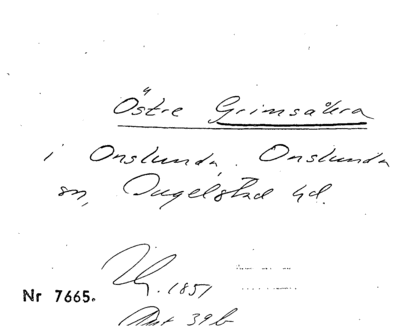 Östre Grimsåkra
i Onslunda, Onslunda
sn, Ingelstad hd.
1851
Nr 7665.
39 b